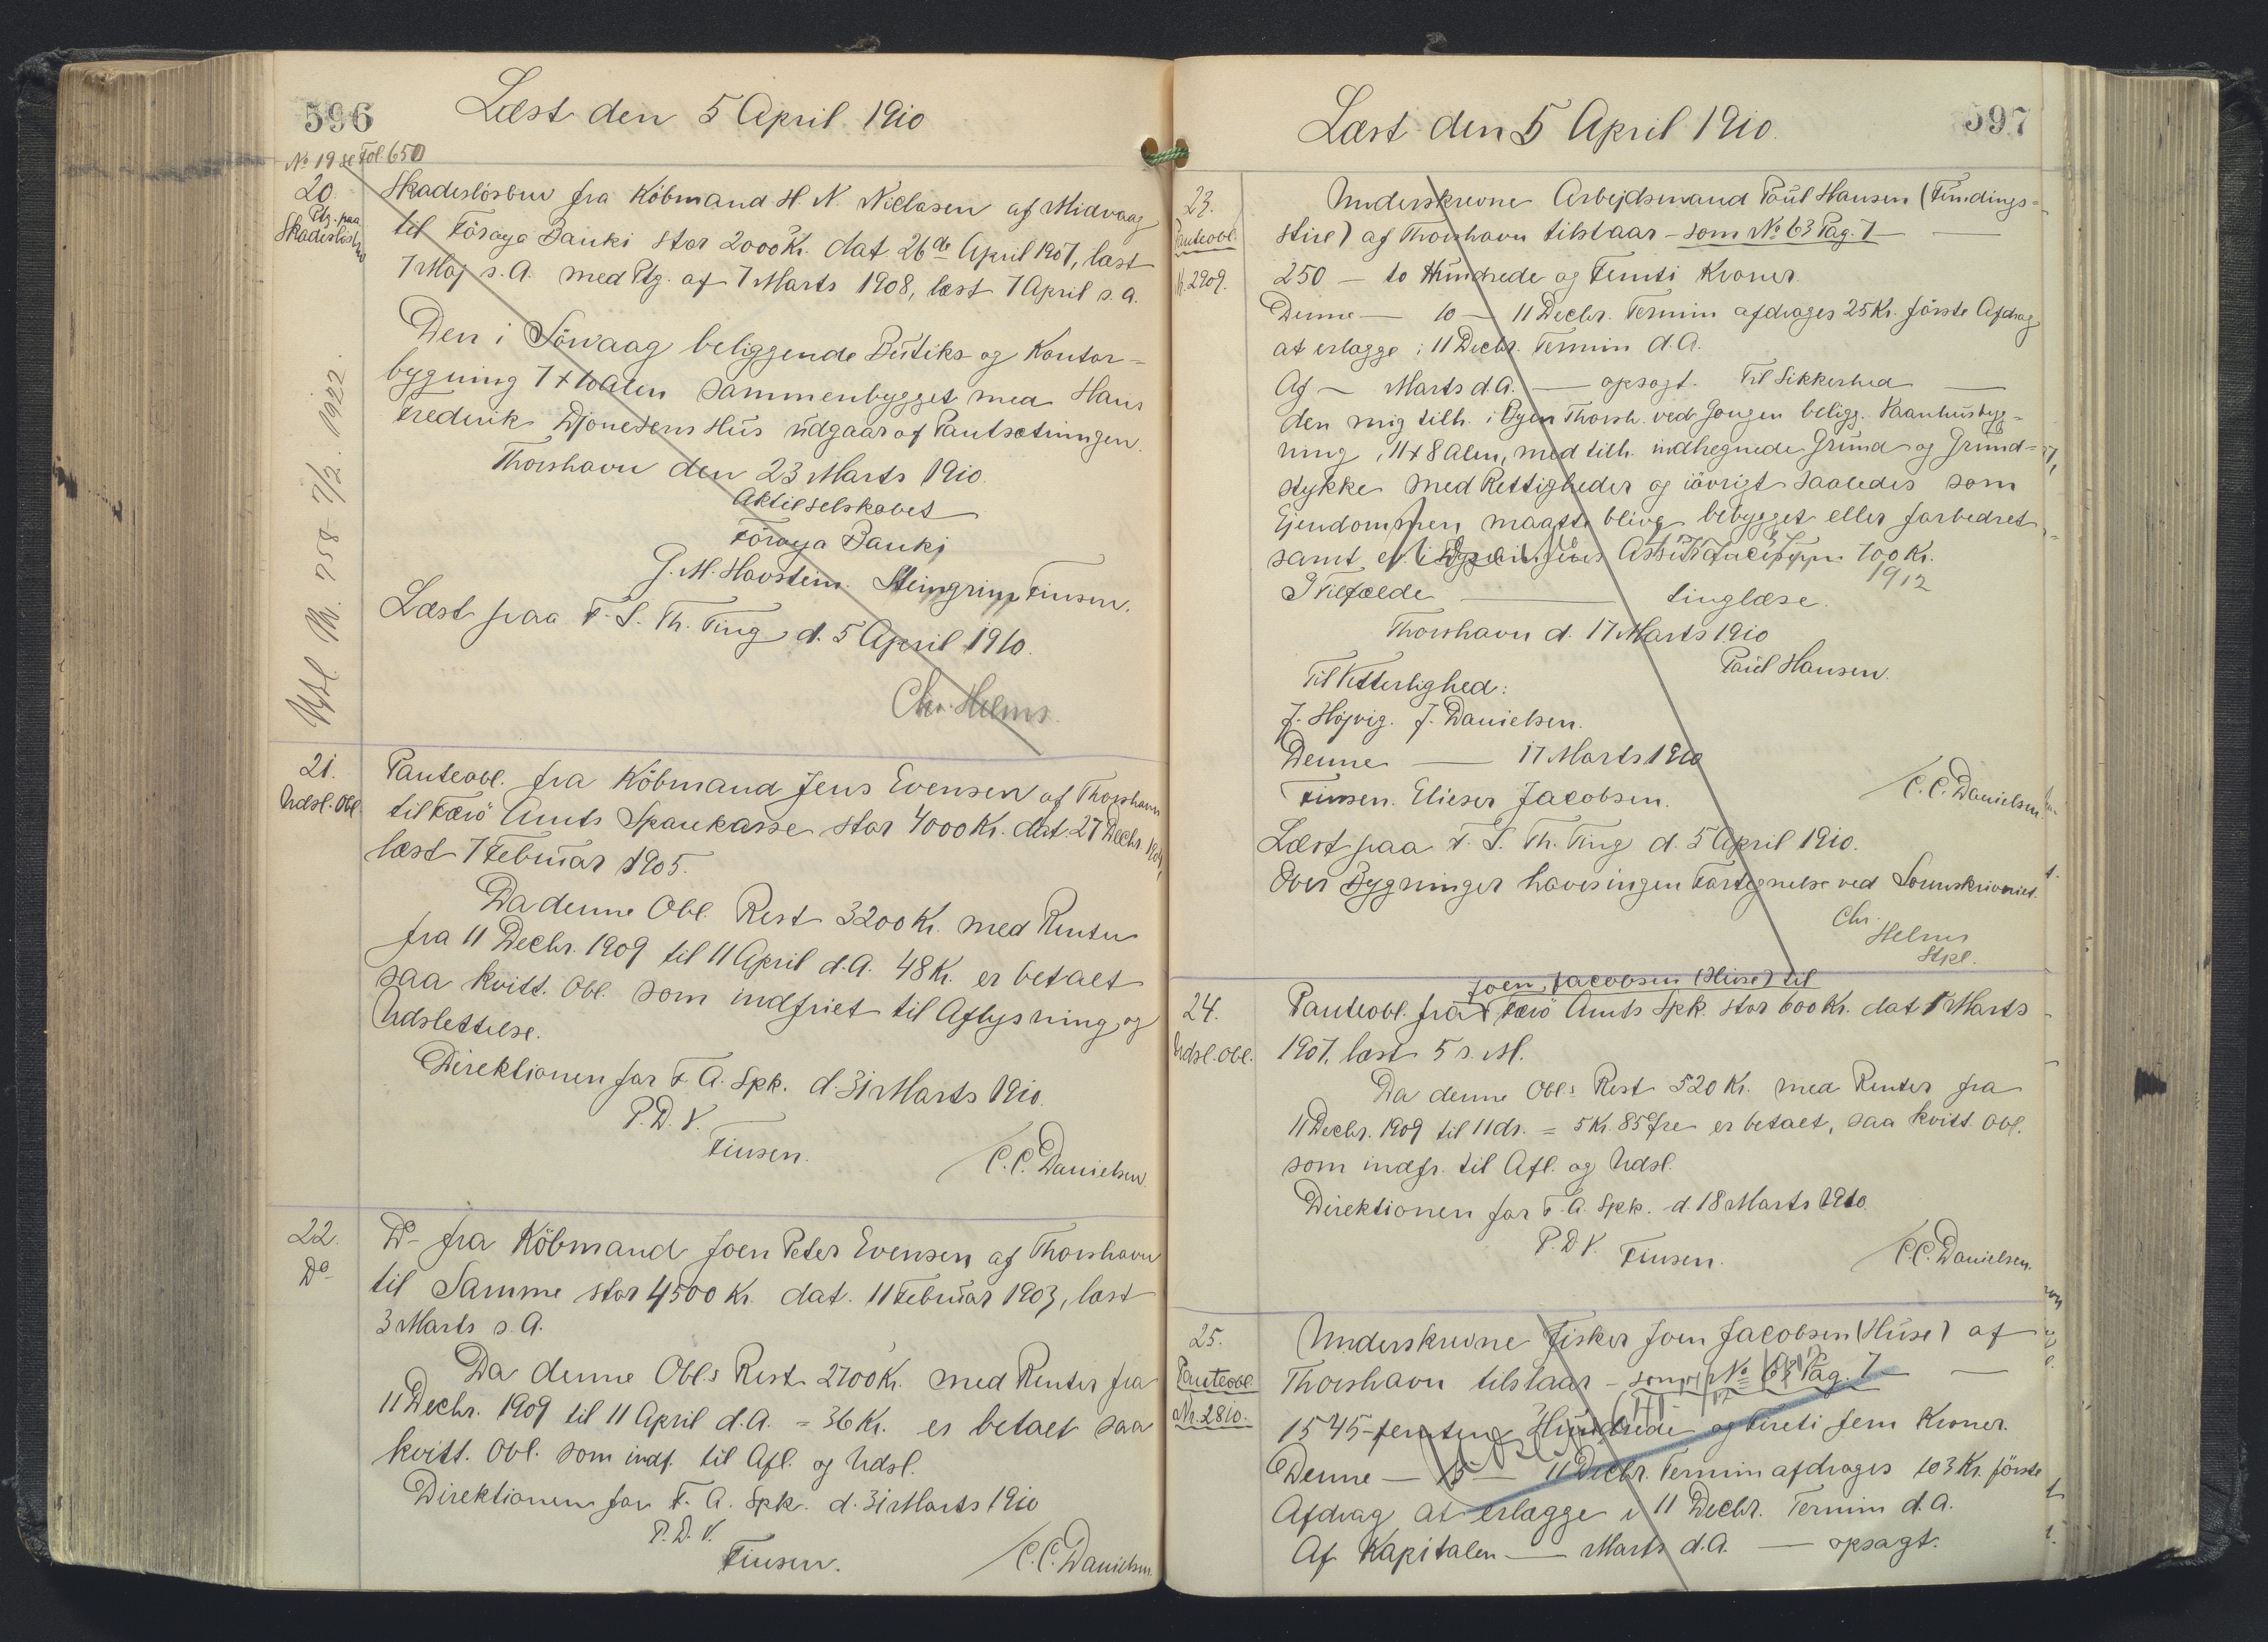 596
Læst den 5 April 1910
No 19 se Fol. 650
20.
Ptg. paa
Skadeslösbr
Skadeslösbrev fra Köbmand H. N. Niclasen af Midvaag
til Föroya Banki stor 2000 Kr. dat. 26de April 1907, læst
7 Maj s.A. med Ptg. af 7 Marts 1908, læst 7 April s.A.
Den i Sörvaag beliggende Butiks og Kontor=
bygning 7 x 10 Alen sammenbygget med Hans
Frederik Djonesens Hus udgaar af Pantsætningen.
Thorshavn den 23 Marts 1910.
Aktieselskabet
Föroya Banki
J. M. Havsteen. Steingrim Finsen.
Læst paa F. S. Th. Ting d. 5 April 1910.
Chr. Helms.
Udsl. Nr. 758 7/2. 1922.
21.
Udsl. Obl.
Panteobl. fra Köbmand Jens Evensen af Thorshavn
til Færö Amts Sparekasse stor 4000 Kr. dat. 27 Decbr. 1904,
læst 7 Februar 1905.
Da denne Obl. Rest 3200 Kr. med Renter
fra 11 Decbr. 1909 til 11 April d.A. 48 Kr. er betalt
saa kvitt. Obl. som indfriet til Aflysning og
Udslettelse.
Direktionen for F. A. Spk. d. 31 Marts 1910.
P. D. V.
Finsen.
C. C. Danielsen.
22.
Do
Do fra Köbmand Joen Peter Evensen af Thorshavn
til Samme stor 4500 Kr. dat. 11 Februar 1903, læst
3 Marts s.A.
Da denne Obl.s Rest 2700 Kr. med Renter fra
11 Decbr. 1909 til 11 April d.A. = 36 Kr. er betalt saa
kvitt. Obl. som indf. til Afl. og Udsl.
Direktionen for F. A. Spk. d. 31 Marts 1910
P. D. V.
Finsen.
C. C. Danielsen.
597
Læst den 5 April 1910.
23.
Panteobl.
N. 2909.
Underskrevne Arbejdsmand Poul Hansen (Fundings=
stue) af Thorshavn tilstaar - som No 63 Pag. 7 -
250 - to Hundrede og Femti Kroner.
Denne - 10 - 11 Decbr. Termin afdrages 25 Kr. förste Afdrag
at erlægge i 11 Decbr. Termin d.A.
Af - Marts d.A. - opsagt. Til Sikkerhed -
den mig tilh. i Byen Thorsh. ved Gongen belig. Vaanhusbyg=
ning, 11 x 8 Alen, med tilh. indhegnede Grund og Grund=
stykke med Rettigheder og iövrigt saaledes som
Ejendommen maatte blive bebygget eller forbedret
samt 700 Kr.
1912
I Tilfælde - tinglæse.
Thorshavn d. 17 Marts 1910
Poul Hansen.
Til Vitterlighed:
J. Höjvig. J. Danielsen.
Denne - 17 Marts 1910
Finsen. Elieser Jacobsen.
C. C. Danielsen.
Læst paa F. S. Th. Ting d. 5 April 1910.
Over Bygninger haves ingen Fortegnelse ved Sorenskriveriet.
Chr.
Helms
Stpl.
24.
Udsl. Obl.
Joen Jacobsen (Huse) til
Panteobl. fra Færö Amts Spk. stor 600 Kr. dat 1 Marts
1907, læst 5 s. M.
Da denne Obl.s Rest 520 Kr. med Renter fra
11 Decbr. 1909 til 11 ds. = 5 Kr. 85 Øre er betalt, saa kvitt. Obl.
som indfr. til Afl. og Udsl.
Direktionen for F. A. Spk. d. 18 Marts 1910
P. D. V.
Finsen.
C. C. Danielsen.
25.
Panteobl.
Nr. 2810.
Underskrevne Fisker Joen Jacobsen (Huse) af
Thorshavn tilstaar - som No 63 Pag. 7 -
1545 - femten Hundrede og Fireti fem Kroner.
Denne - 15 - 11 Decbr. Termin afdrages 103 Kr. förste
Afdrag at erlægge i 11 Decbr. Termin d.A.
Af Kapitalen - Marts d.A. - opsagt.